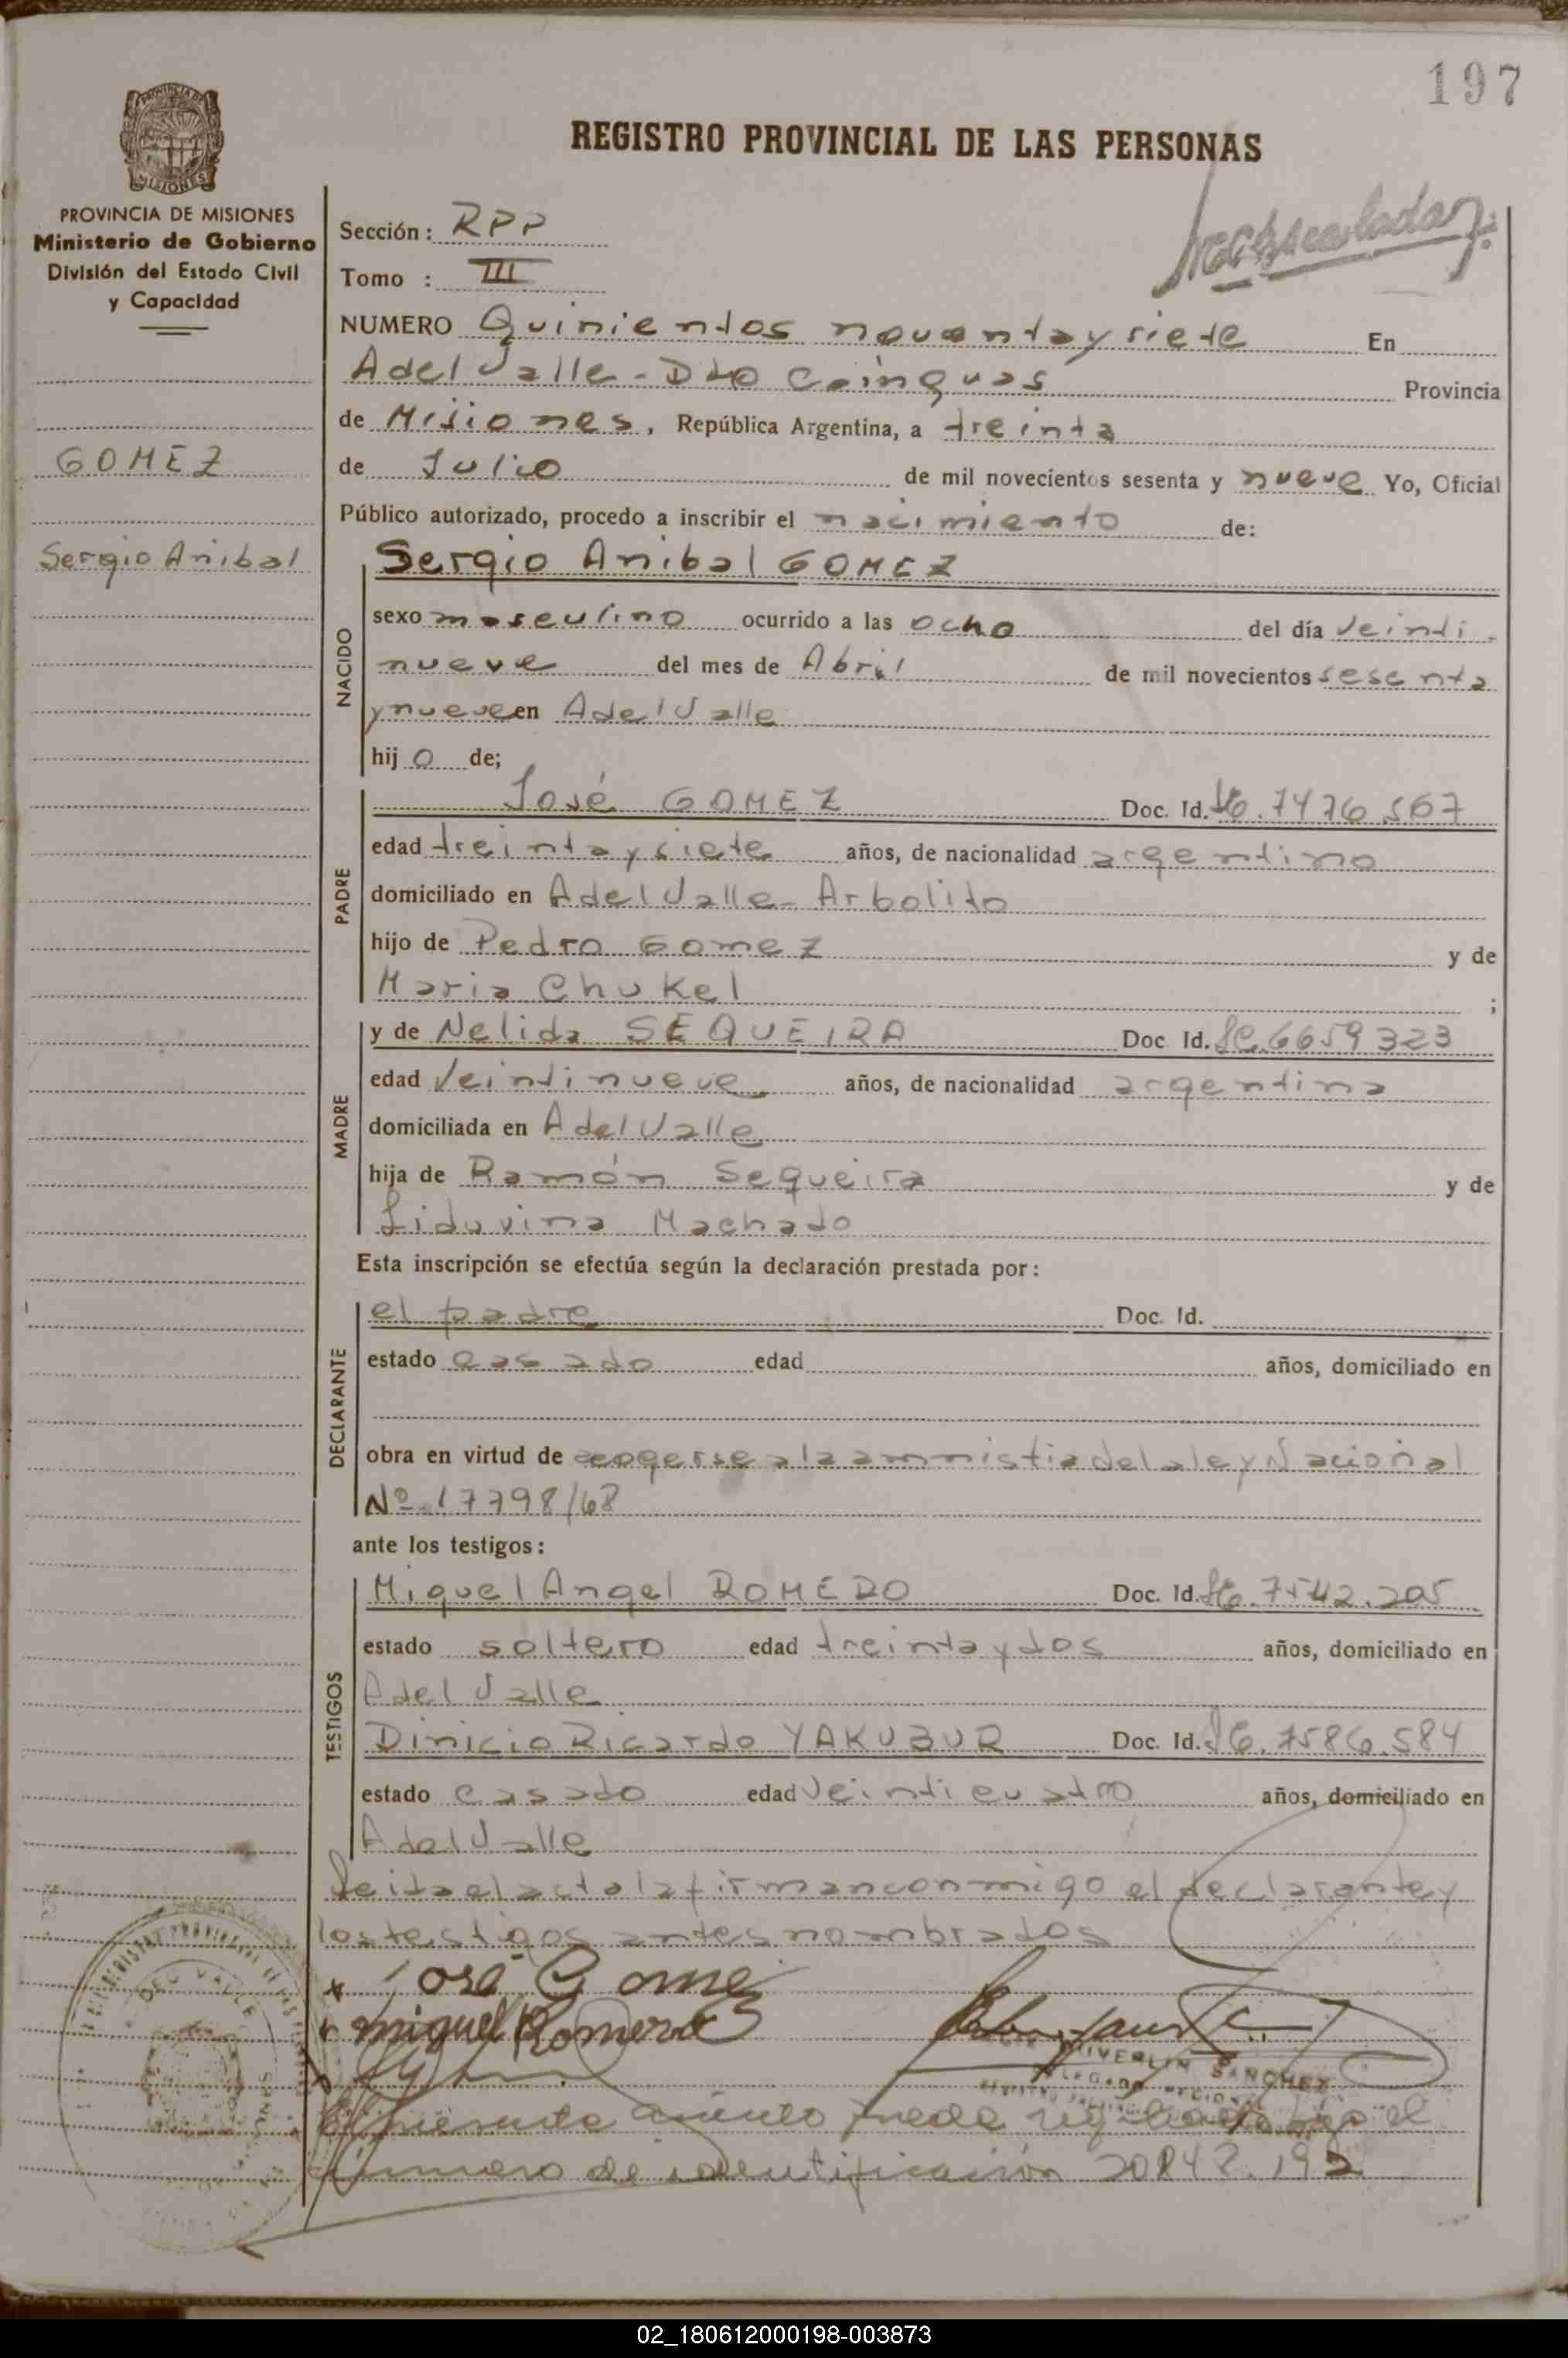 197
REGISTRO PROVINCIAL DE LAS PERSONAS
MISIONES
PROVINCIA DE MISIONES
Ministerio de Gobierno
División del Estado Civil
y Capacidad
GOMEZ
Sergio Anibal
Sección: RPP
Tomo : III
NUMERO Quinientos noventa y siete En
A del Valle - Dto Cainguas Provincia
de Misiones, República Argentina, a treinta
de Julio de mil novecientos sesenta y nueve Yo, Oficial
Público autorizado, procedo a inscribir el nacimiento de:
NACIDO
Sergio Anibal GOMEZ
sexo masculino ocurrido a las ocho del día veinti-
nueve del mes de Abril de mil novecientos sesenta
y nueve en A del Valle
hijo de;
PADRE
José GOMEZ Doc. Id. 7476.567
edad treinta y siete años, de nacionalidad argentino
domiciliado en A del Valle - Arbolito
hijo de Pedro Gomez y de
Maria Chukel ;
MADRE
y de Nelida SEQUEIRA Doc Id. 6659323
edad veintinueve años, de nacionalidad argentina
domiciliada en A del Valle
hija de Ramón Sequeira y de
Liduvina Machado
Esta inscripción se efectúa según la declaración prestada por:
DECLARANTE
el padre Doc. Id.
estado casado edad años, domiciliado en
obra en virtud de acogerse a la amnistia de la ley Nacional
Nº 17798/68
ante los testigos:
TESTIGOS
Miguel Angel ROMERO Doc. Id. 7542.205
estado soltero edad treinta y dos años, domiciliado en
A del Valle
Dinicio Ricardo YAKUBUR Doc. Id. 7586.584
estado casado edad veinticuatro años, domiciliado en
A del Valle
Leida el acta la firman conmigo el declarante y
los testigos antes nombrados
José Gomez
Miguel Romero
SANCHEZ
DEL VALLE
El presente asiento queda bajo el
número de identificación 20848.192
02_180612000198-003873